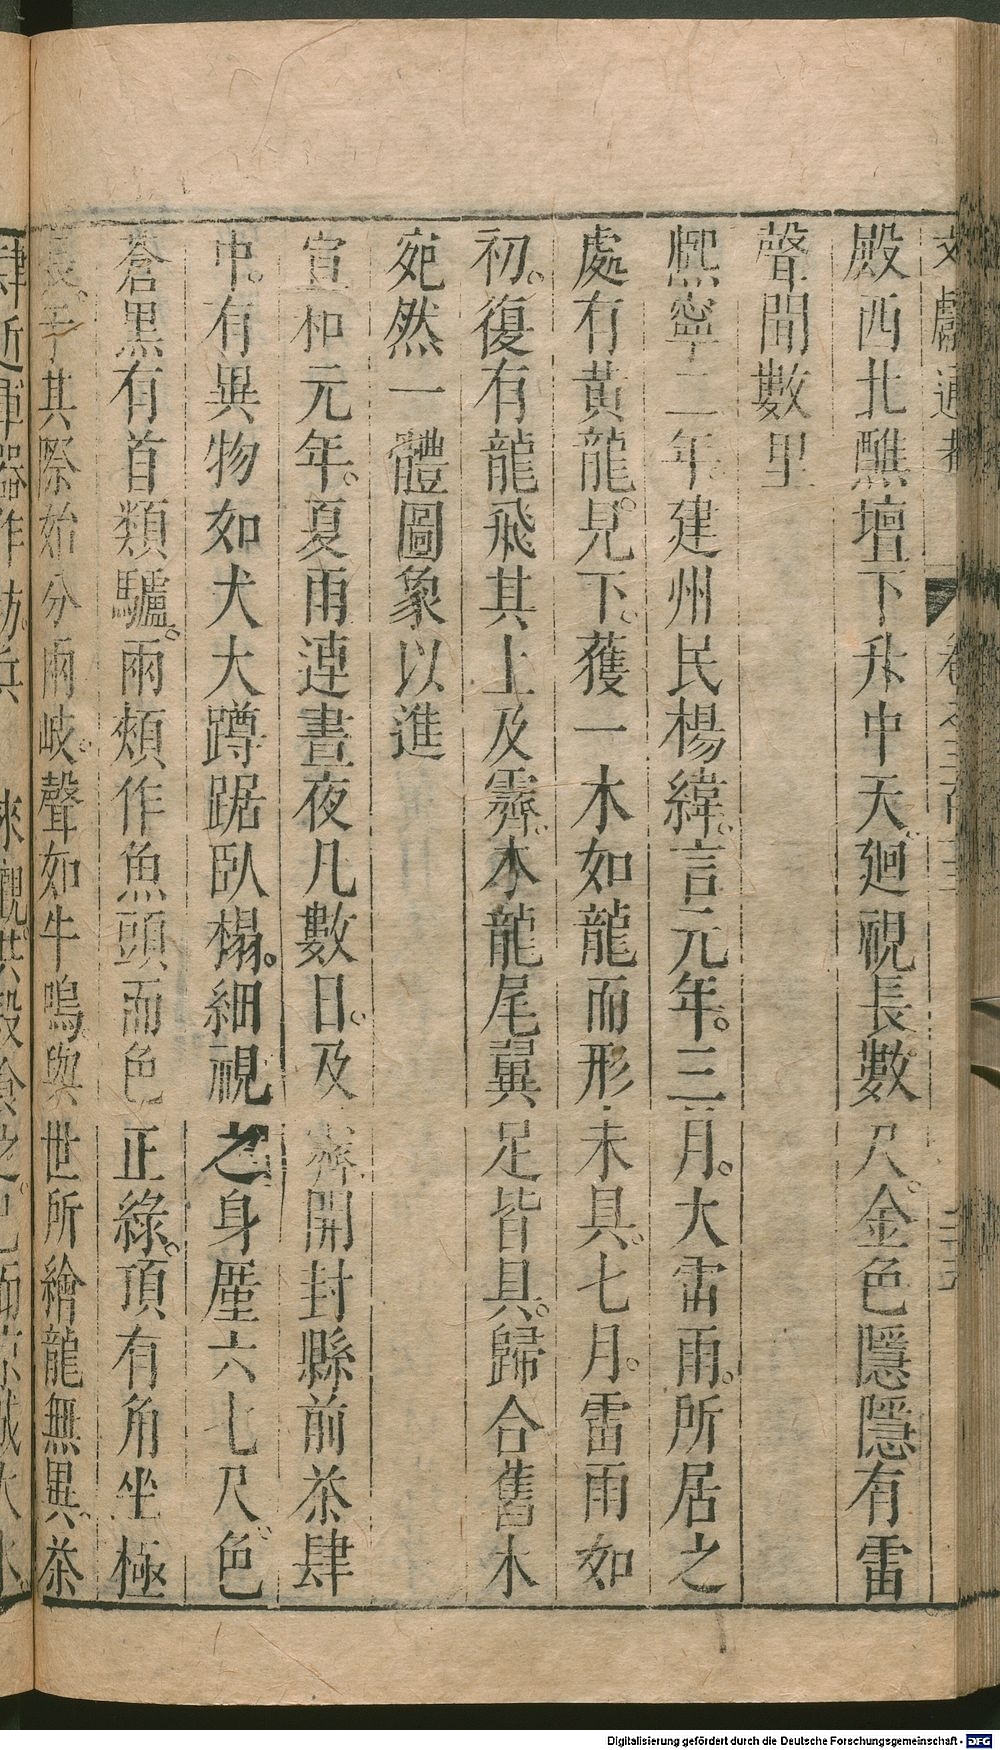 文獻通考 卷之三百十三
殿西北醮壇下升中天。廻視長數尺。金色隱隱有雷
聲聞數里
熙寧二年建州民楊緯。言元年。三月。大雷雨。所居之
處有黃龍。見下。獲一木如龍而形未具。七月。雷雨如
初。復有龍飛其上及霽。木龍尾翼足皆具。歸合舊木
宛然一體圖象以進
宣和元年。夏雨連晝夜凡數日。及霽開封縣前茶肆
中。有異物如犬大蹲踞臥榻。細視之身厪六七尺。色
蒼黑有首類驢。兩頰作魚頭而色正綠。頂有角坐極
長。于其際始分兩岐。聲如牛鳴。與世所繪龍無異。茶